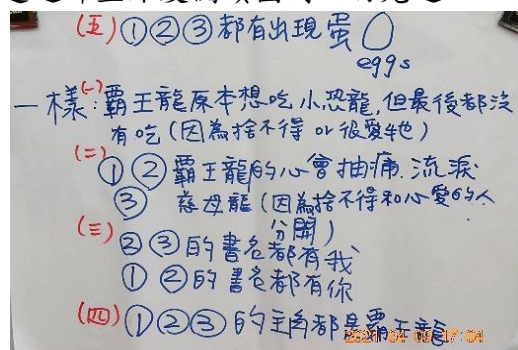 (五)①②③都有出現蛋
eggs
一樣:(一)霸王龍原本想吃小恐龍,但最後都沒
有吃(因為捨不得 or 很愛牠)
(二)
①②霸王龍的心會抽痛.流淚
③ 慈母龍(因為捨不得和心愛的人
分開)
(三)
②③的書名都有我
①②的書名都有你
(四)①②③的主角都是霸王龍
2021 04 09 17:04